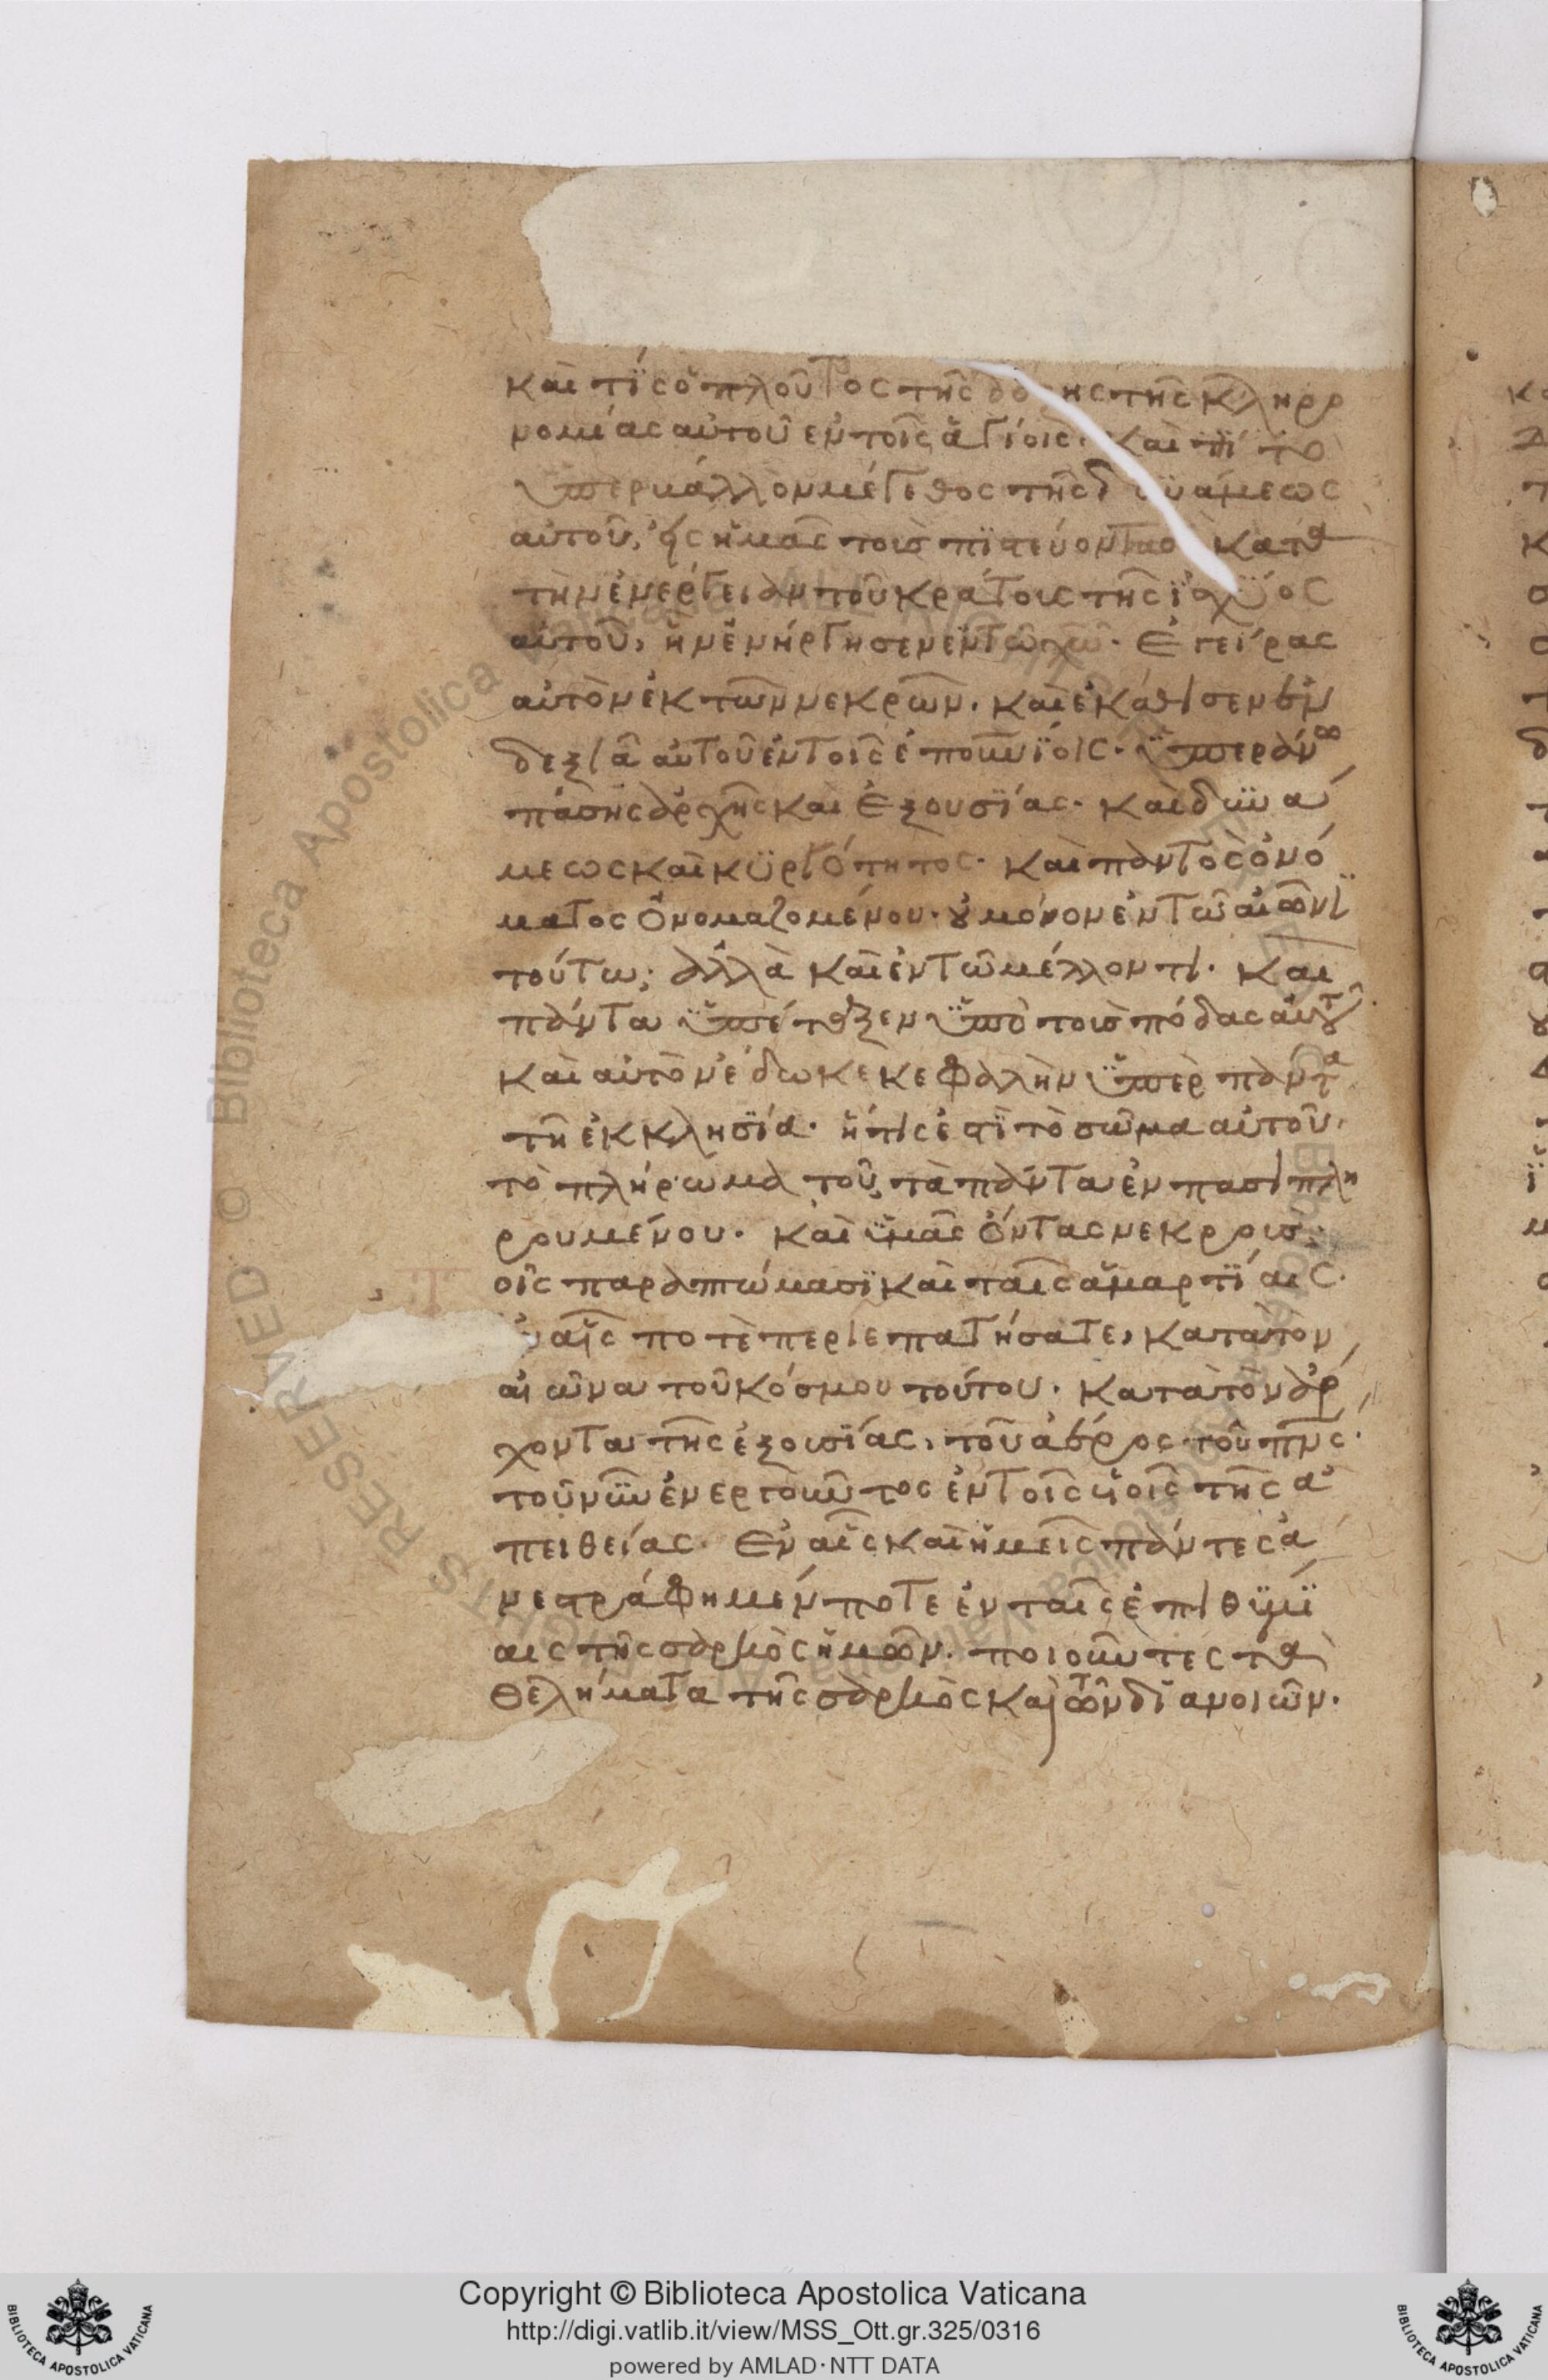 καὶ τίς ὁ πλοῦτος τῆς δό ης τῆς κληρο
νομίας αὐτοῦ ἐν τοῖς ἁγίοις. καὶ τί τὸ
ὑπερβάλλον μέγεθος τῆς δυνάμεως
αὐτοῦ, εἰς ἡμᾶς τοὺς πιστεύοντας κατὰ
τὴν ἐνέργειαν τοῦ κράτους τῆς ἰσχύος
αὐτοῦ, ἣν ἐνήργησεν ἐν τῶ χω. Ἐγείρας
αὐτὸν ἐκ τῶν νεκρῶν. καὶ ἐκάθισεν ἐν
δεξιᾶ αὐτοῦ ἐν τοῖς ἐπουνίοις. ὑπεράνω
πάσης ἀρχῆς καὶ ἐξουσίας. καὶ δυνά
μεως καὶ κυριότητος. καὶ παντὸς ὀνό
ματος ὀνομαζομένου. οὐ μόνον ἐν τῶ αἰῶνι
τούτω, ἀλλὰ καὶ ἐν τῶ μέλλοντι. καὶ
πάντα ὑπέταξεν ὑπὸ τοὺς πόδας αὐτοῦ.
καὶ αὐτὸν ἔδωκε κεφαλὴν ὑπὲρ πάντα
τῆ ἐκκλησία. ἥτις ἐστὶ τὸ σῶμα αὐτοῦ,
τὸ πλήρωμα τοῦ τὰ πάντα ἐν πασι πλη
ρουμένου. καὶ ὑμᾶς ὄντας νεκροὺς.
οῖς παραπτώμασι καὶ ταῖς ἁμαρτίαις.
ἐν αἷς ποτὲ περιεπατήσατε, κατὰ τὸν
αἰῶνα τοῦ κόσμου τούτου. κατὰ τὸν ἄρ
χοντα τῆς ἐξουσίας, τοῦ ἀέρος. τοῦ πνς.
τοῦ νῦν ἐνεργοῦντος ἐν τοῖς υἱοῖς τῆς ἀ
πειθείας. Ἐν αἷς καὶ ἡμεῖς πάντες ἀ
νεστράφημέν ποτε ἐν ταῖς ἐπιθυμί
αις τῆς σαρκὸς ἡμῶν. ποιοῦντες τὰ
θελήματα τῆς σαρκὸς καὶ τῶν διανοιῶν.
Copyright © Biblioteca Apostolica Vaticana
http://digi.vatlib.it/view/MSS_Ott.gr.325/0316
powered by AMLAD·NTT DATA